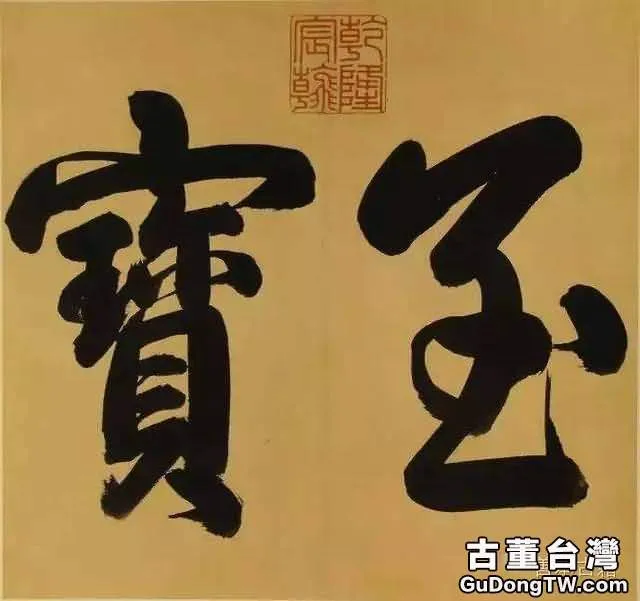 乾隆宸翰
至寶
古董台灣
GuDongTW.com